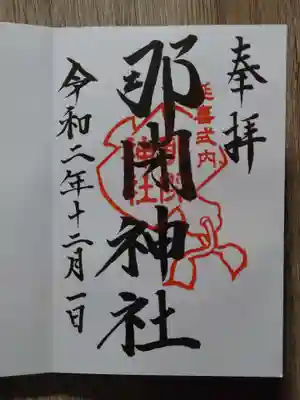 奉拝
延喜式内
那閇神社
令和二年十二月一日